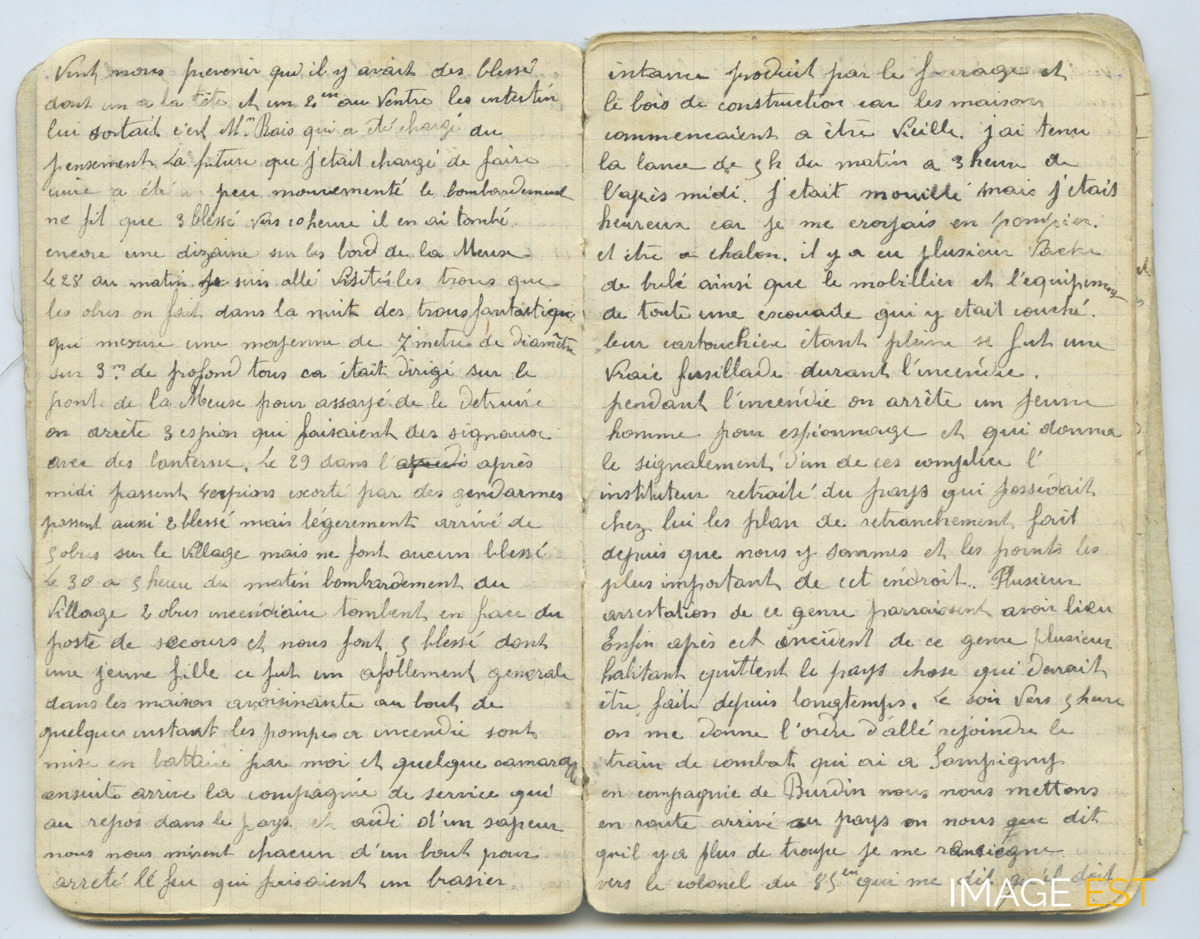 Vint nous prevenir qu'il y avait des blessé
dont un a la tête et un 2em au ventre les intestin
lui sortait c'est Mr Bais qui a été chargé du
pensement. La future que j'était chargé de faire
une a été peu mouvementé le bombardement
ne fit que 3 blessé vers 10 heure il en ai tombé
encore une dizaine sur les bord de la Meuse
Le 28 au matin je suis allé visités les trous que
les obus on fait dans la nuit des trous fantastique
qui mesure une moyenne de 7 metre de diamètre
sur 3m de profond tous ca était dirigé sur le
pont de la Meuse pour assayé de le detruire
on arrète 3 espion qui faisaient des signaux
avec des lanterne. Le 29 dans l' après
midi passent 4 espions escorté par des gendarmes
passent aussi 2 blessé mais légerement arrivé de
5 obus sur le village mais ne font aucun blessé
Le 30 a 5 heure du matin bombardement du
village 2 obus incendiaire tombent en face du
poste de secours et nous font 5 blessé dont
une jeune fille ce fut un afollement generale
dans les maison avoisinante au bout de
quelques instant les pompes a incendie sont
mise en batterie par moi et quelque camarade
ensuite arrive la compagnie de service qui
au repos dans le pays et aidi d'un sapeur
nous nous mirent chacun d'un bout pour
arreté lé feu qui faisaient un brasier
intense produit par le fourage et
le bois de construction car les maisons
commencaient a être vieille. j'ai tenu
la lance de 5h du matin a 3 heure de
l'après midi. J'etait mouillé mais j'était
heureux car je me croyais en pompier
et être a chalon. il y a eu plusieur vache
de brulé ainsi que le mobillier et l'équipement
de toute une escouade qui y etait couché.
leur cartouchiere étant pleine se fut une
vraie fusillade durant l'incendie.
pendant l'incendie on arrête un jeune
homme pour espionnage et qui donna
le signalement d'un de ces complice l'
instituteur retraité du pays qui possedait
chez lui les plan de retranchement fait
depuis que nous y sommes et les points les
plus important de cet endroit. Plusieur
arrestation de ce genre parraissent avoir lieu
Enfin après cet incident de ce genre plusieur
habitant quittent le pays chose qui devait
être fait depuis longtemps. Le soir vers 5 heure
on me donne l'ordre d'allé rejoindre le
train de combat qui ai a Sampigny
en compagnie de Burdin nous nous mettons
en route arrivé au pays on nous que dit
qu'il y a plus de troupe je me
vers le colonel du 85em qui me dit qu'il doit
IMAGE EST